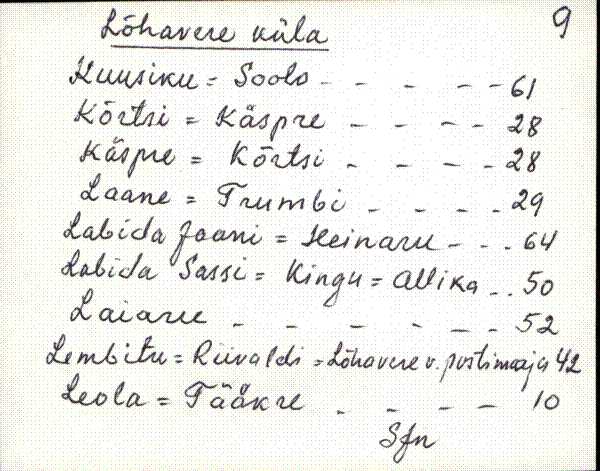 9
Lõhavere küla
Kuusiku = Soolo - - - - - 61
Kõrtsi = Käspre - - - - 28
Käspre = Kõrtsi - - - - 28
Laane = Trumbi - - - - 29
Labida Jaani = Heinaru - - - 64
Labida Sassi = Kingu = Allika - .. 50
Laiaru - - - - - - 52
Lembitu = Riivaldi = Lõhavere v. postimaja 42
Leola = Tääkre - - - - 10